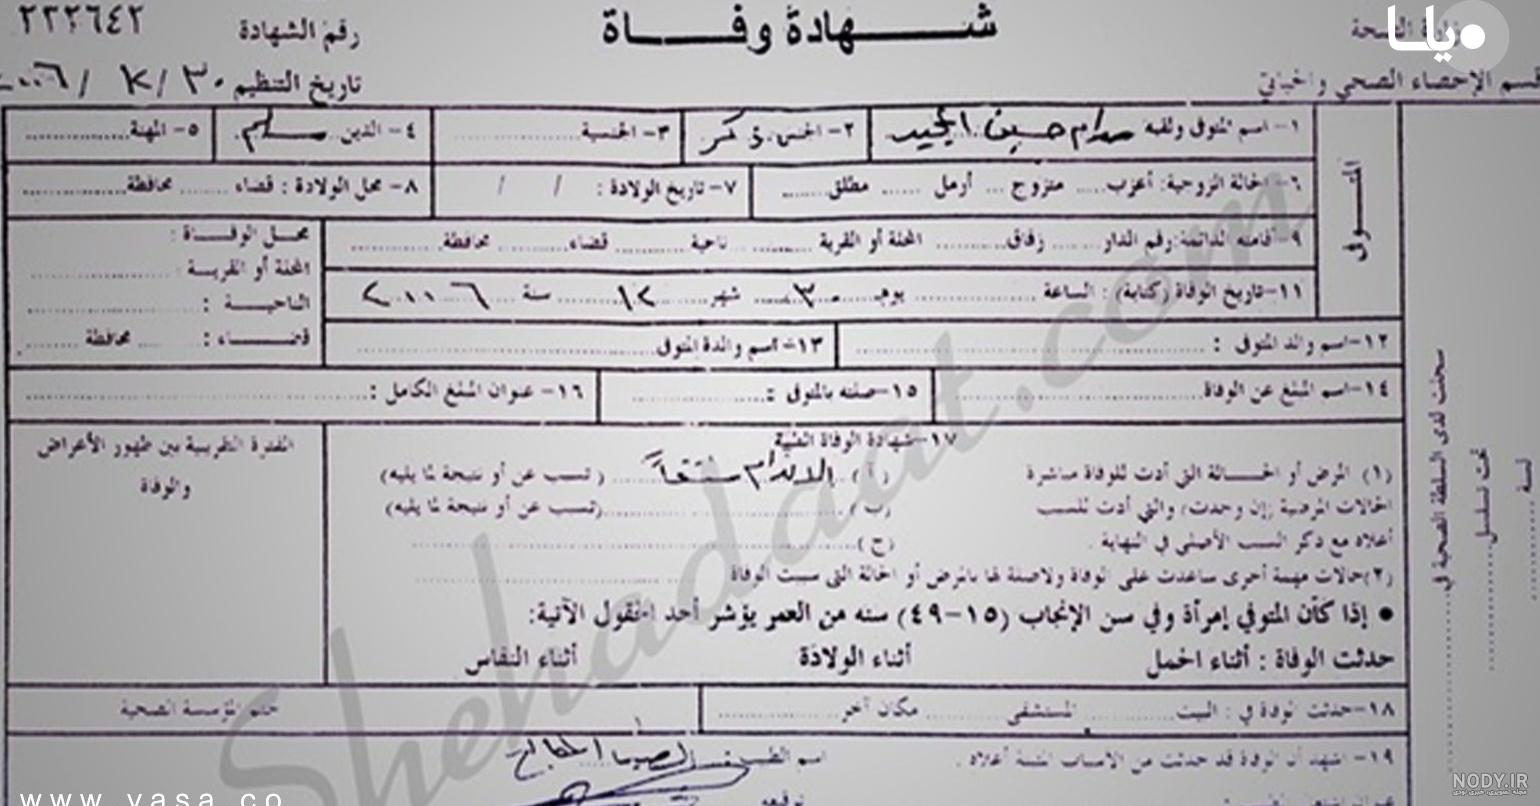 وزارة الصحة
ياسا
شهادة وفاة
رقم الشهادة ٢٢٢٦٤٢
قسم الإحصاء الصحي والحياتي
تاريخ التنظيم ٣٠ / ١٢ / ٢٠٠٦
المتوفى
١- اسم المتوفى ولقبه صدام حسين المجيد
٢- الجنس ذكر
٣- الجنسية
٤- الدين مسلم
٥- المهنة
٦- الحالة الزوجية: أعزب متزوج أرمل مطلق
٧- تاريخ الولادة : / /
٨- محل الولادة : قضاء محافظة
٩- أقامته الدائمة: رقم الدار زقاق المحلة أو القرية ناحية قضاء محافظة
محل الوفاة :
المحلة أو القرية :
الناحية :
قضاء : محافظة
١١- تاريخ الوفاة (كتابة) : الساعة يوم ٣٠ شهر ١٢ سنة ٢٠٠٦
١٢- اسم والد المتوفى :
١٣- اسم والدة المتوفى
١٤- اسم المبلغ عن الوفاة
١٥- صلته بالمتوفى :
١٦- عنوان المبلغ الكامل :
١٧- شهادة الوفاة الطبية
الفترة التقريبية بين ظهور الأعراض
والوفاة
(١) المرض أو الحالة التي أدت للوفاة مباشرة (أ) الاعدام شنقاً (تسبب عن أو نتيجة لما يليه)
الحالات المرضية (إن وجدت) والتي أدت للسبب (ب) (تسبب عن أو نتيجة لما يليه)
أعلاه مع ذكر السبب الأصلي في النهاية . (ج)
(٢) حالات مهمة أخرى ساعدت على الوفاة ولاصلة لها بالمرض أو الحالة التي سببت الوفاة
• إذا كأن المتوفي إمرأة وفي سن الإنجاب (١٥-٤٩) سنه من العمر يؤشر أحد الحقول الآتية:
حدثت الوفاة : أثناء الحمل أثناء الولادة أثناء النفاس
١٨- حدثت الوفاة في : البيت المستشفى مكان آخر
ختم المؤسسة الصحية
١٩- اشهد أن الوفاة قد حدثت من الأسباب المبينة أعلاه .
اسم الطبيب
توقيعه
سجلت لدى السلطة الصحية في
تحت تسلسل
لسنة
Shehadaat.com
www.yasa.co
NODY.IR